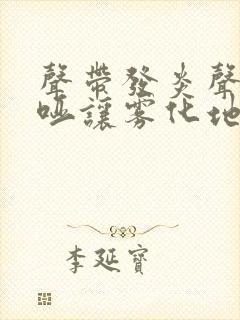 聲帶發炎聲
啞讓霧化地
李延寶